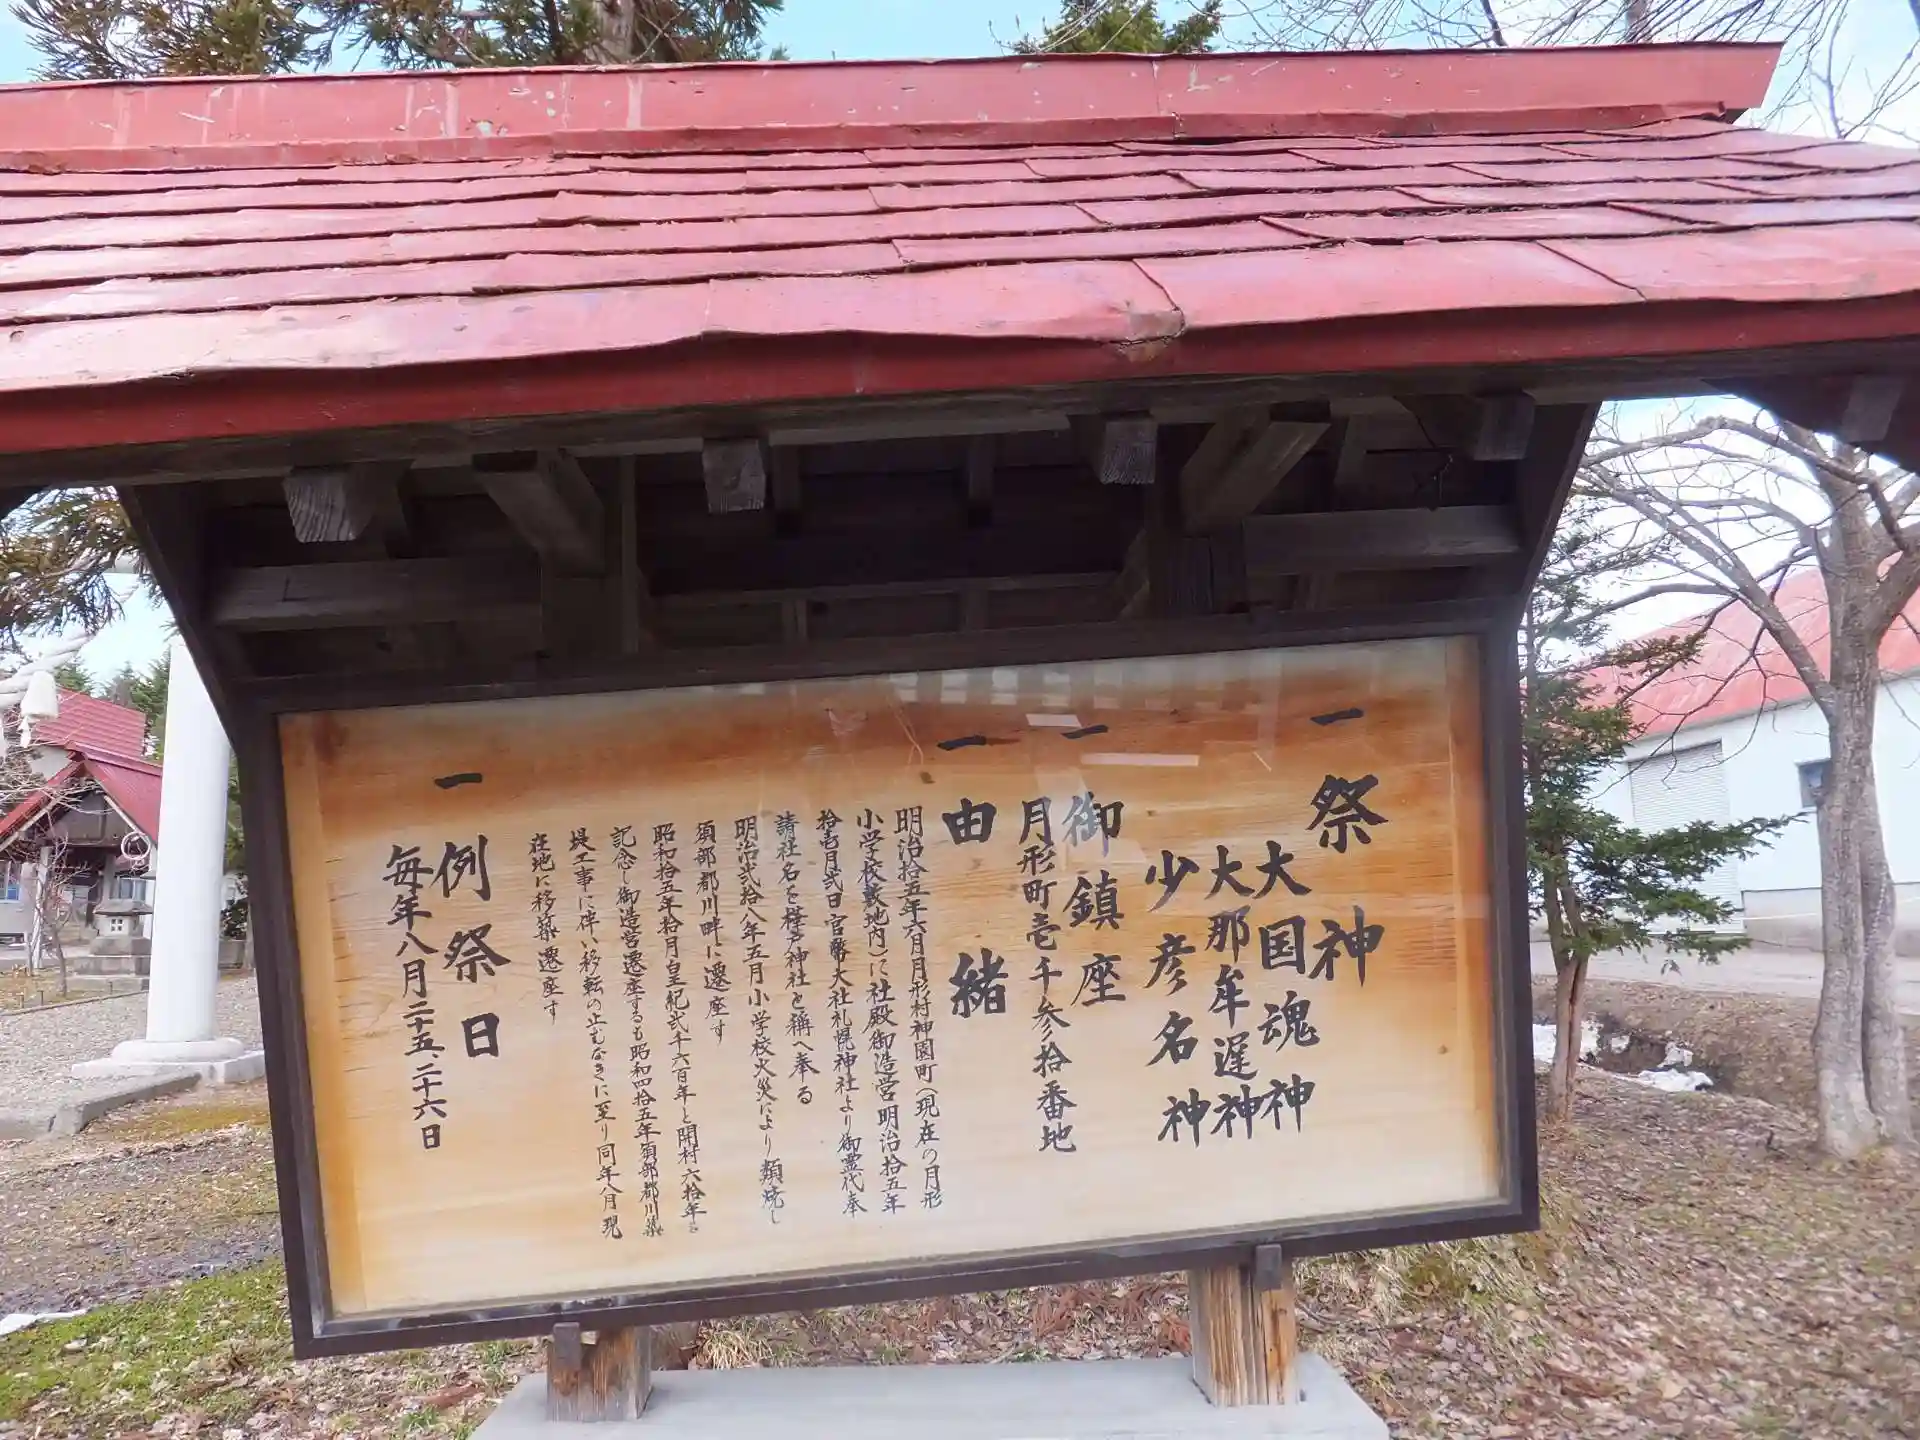 一 祭神
大国魂神
大那牟遅神
少彦名神
一 御鎮座
月形町壱千参拾番地
一 由緒
明治拾五年六月月形村神園町(現在の月形
小学校敷地内)に社殿御造営明治拾五年
拾壱月弐日官幣大社札幌神社より御霊代奉
請社名を樺戸神社と称へ奉る
明治弐拾八年五月小学校火災により類焼し
須部都川畔に遷座す
昭和拾五年拾月皇紀弐千六百年と開村六拾年を
記念し御造営遷座するも昭和四拾五年須部都川築
堤工事に伴い移転の止むなきに至り同年八月現
在地に移築遷座す
一 例祭日
毎年八月二十五、二十六日